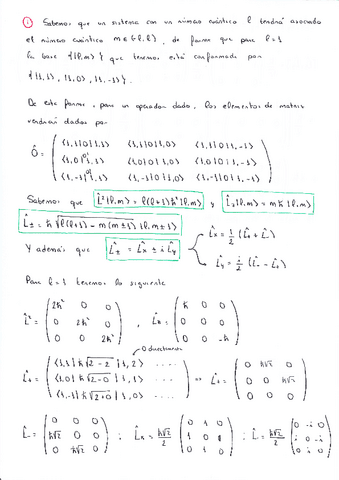 ① Sabemos que un sistema con un número cuántico l tendrá asociado
el número cuántico m ∈ {-l, l}, de forma que para l=1
la base {|l,m⟩} que tenemos está conformada por
{|1,1⟩, |1,0⟩, |1,-1⟩}.
De esta forma, para un operador dado, los elementos de matriz
vendrán dados por
Ô = ( ⟨1,1|Ô|1,1⟩ ⟨1,1|Ô|1,0⟩ ⟨1,1|Ô|1,-1⟩
⟨1,0|Ô|1,1⟩ ⟨1,0|Ô|1,0⟩ ⟨1,0|Ô|1,-1⟩
⟨1,-1|Ô|1,1⟩ ⟨1,-1|Ô|1,0⟩ ⟨1,-1|Ô|1,-1⟩ )
Sabemos que L̂²|l,m⟩ = l(l+1)ħ²|l,m⟩ y L̂z|l,m⟩ = mħ|l,m⟩
L̂± = ħ√(l(l+1) - m(m±1)) |l,m±1⟩
Y además que L̂± = L̂x ± i L̂y
L̂x = 1/2 (L̂+ + L̂-)
L̂y = i/2 (L̂- - L̂+)
Para l=1 tenemos lo siguiente
L̂² = ( 2ħ² 0 0
0 2ħ² 0
0 0 2ħ² ) ,
( ħ 0 0
0 0 0
0 0 -ħ )
L̂+ = ( ⟨1,1|ħ√2-2|1,2⟩ ....
⟨1,0|ħ√2-0|1,1⟩ ....
⟨1,-1|ħ√2+0|1,0⟩ .... ) ⇒ L̂+ = ( 0 ħ√2 0
0 0 ħ√2
0 0 0 )
( 0 0 0
ħ√2 0 0
0 ħ√2 0 ) ; L̂x = ħ√2/2 ( 0 1 0
1 0 1
0 1 0 ) ; ħ√2/2 ( 0 -i 0
i 0 -i
0 i 0 )